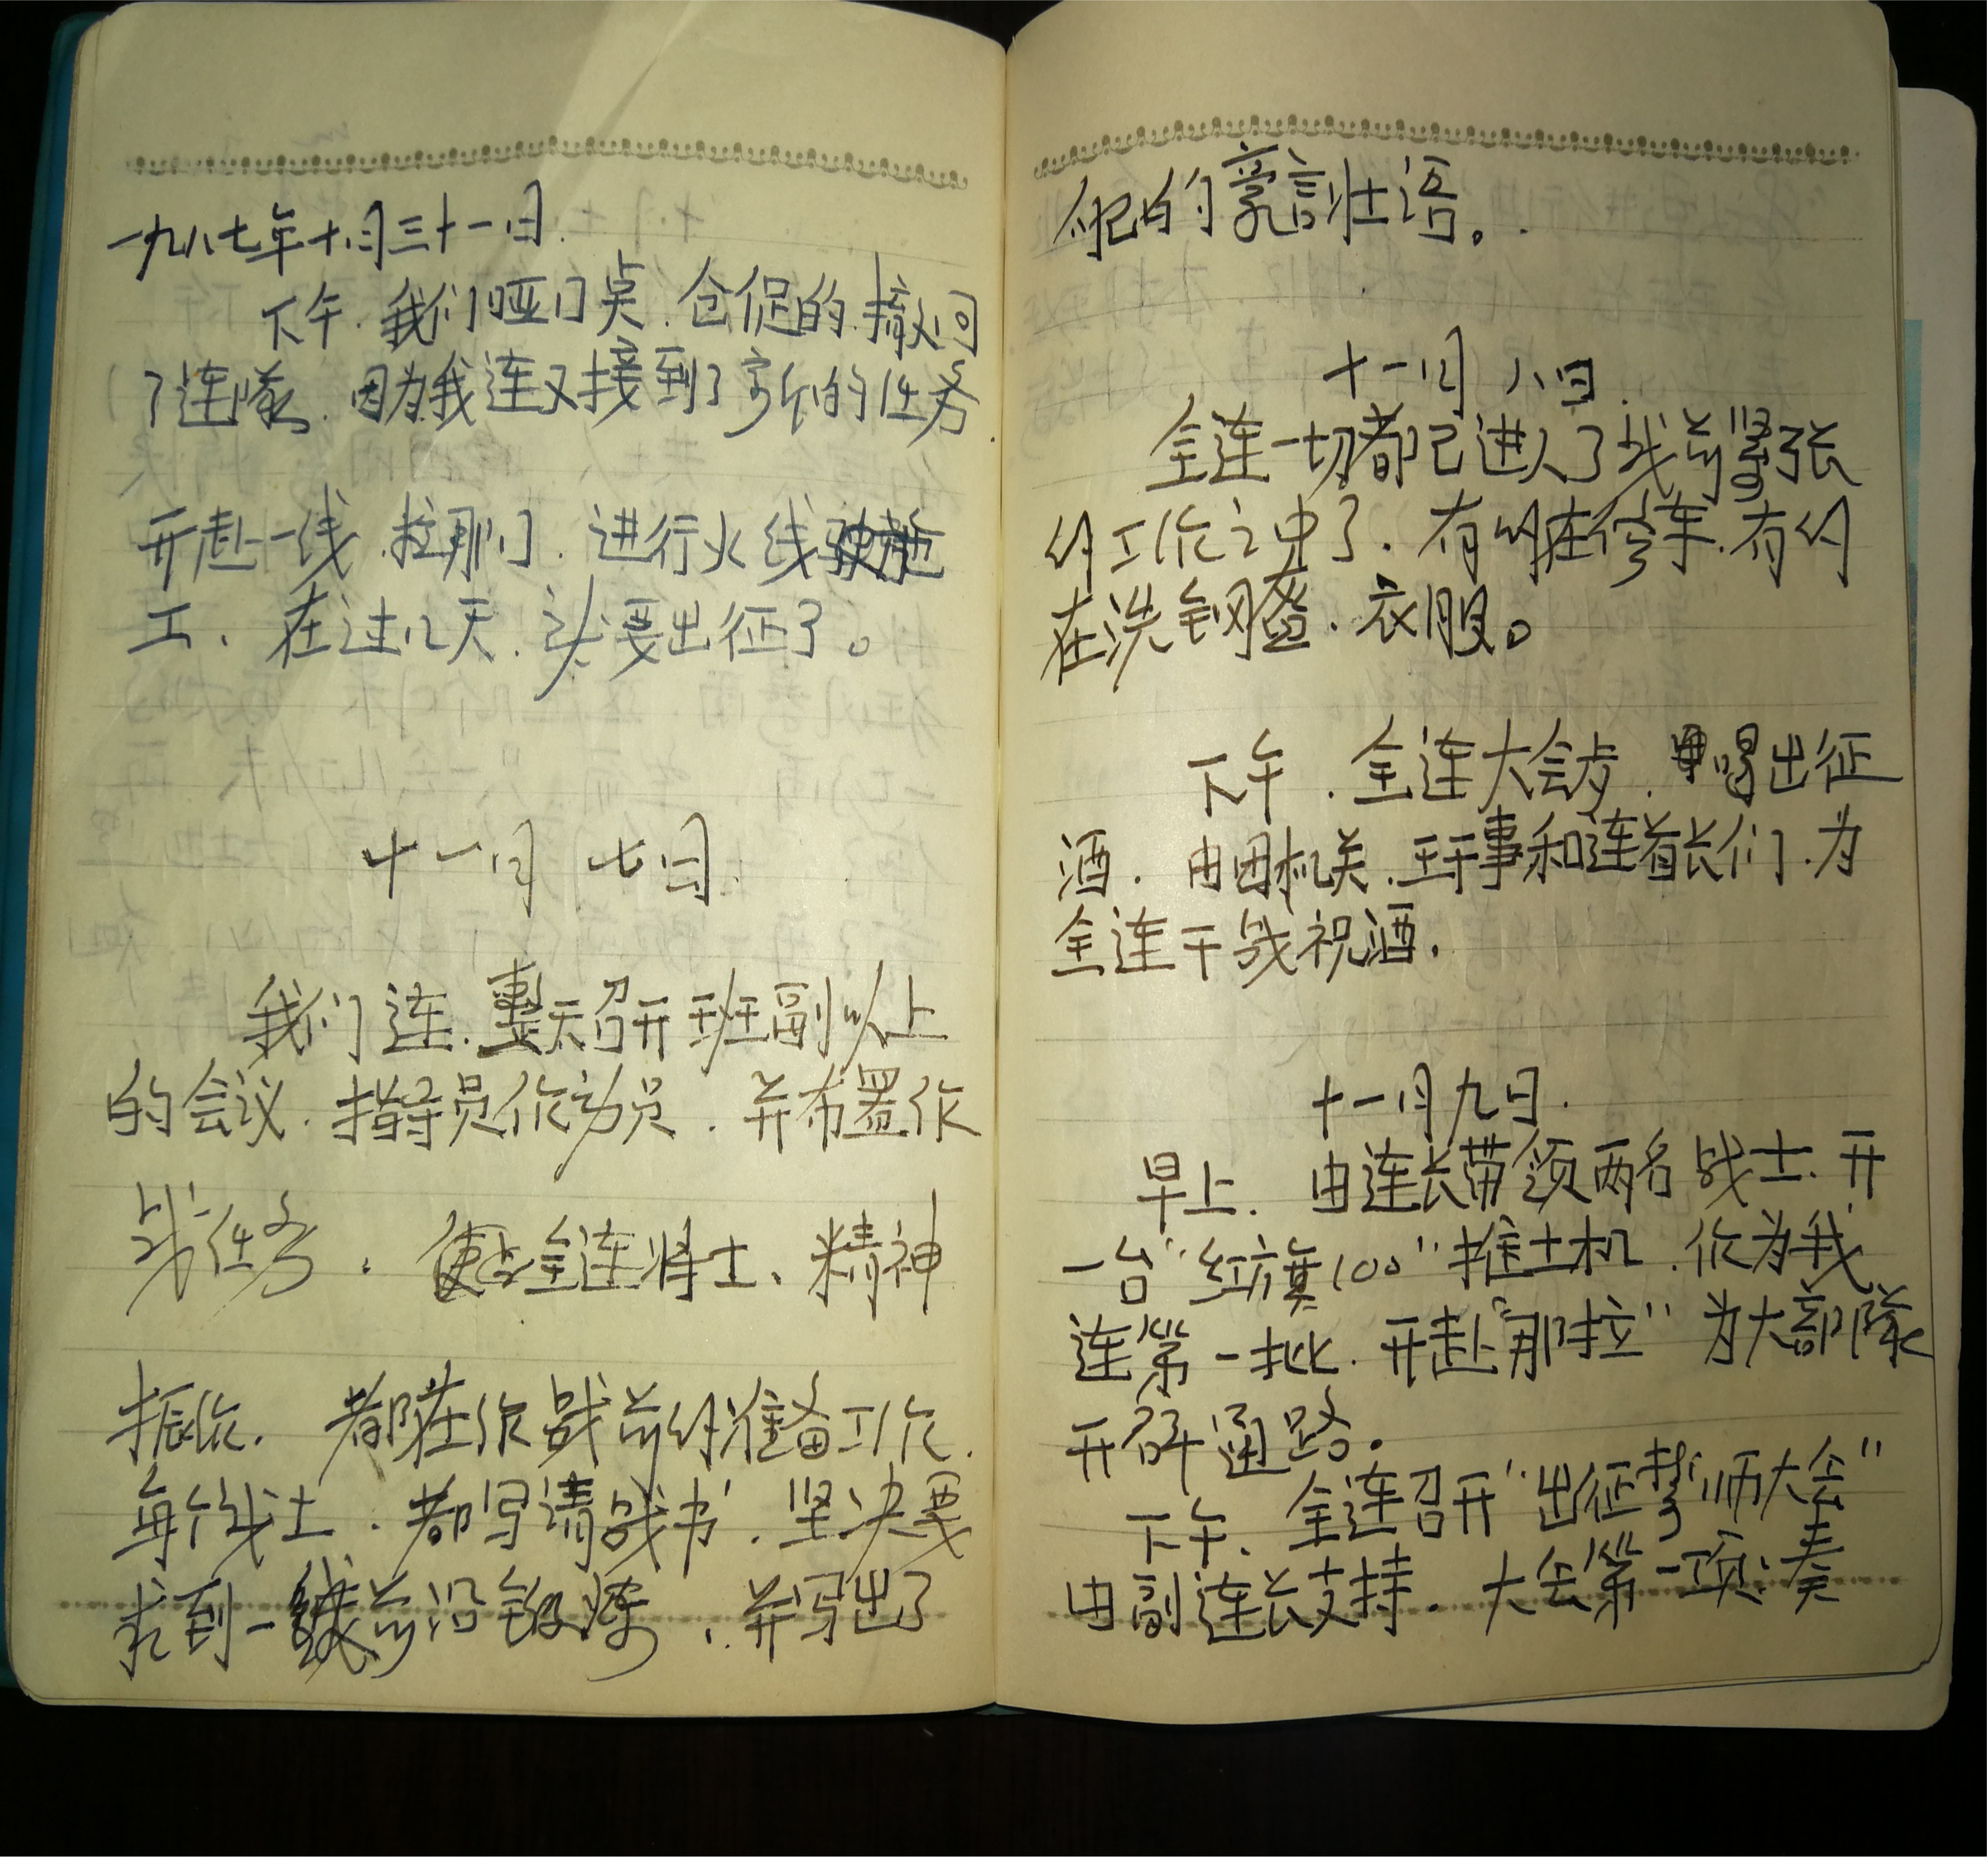 一九八七年十月三十一日.
下午.我们哑口点.仓促的.撤回
了连队.因为我连又接到了新的任务.
开赴一线.拉那门.进行火线施
工、在过几天.头要出征了。
十一月七日.
我们连.整天召开班副以上
的会议.指导员作动员.并布置作
战任务.使全连将士、精神
振作.都在作战前的准备工作.
每个战士.都写请战书.坚决要
求到一线前沿锻炼.并写出了
自己的豪言壮语。.
十一月八日.
全连一切都已进入了战前紧张
的工作之中了.有的在修车.有的
在洗钢盔.衣服。
下午.全连大会步.喝出征
酒.由团机关.干事和连首长们.为
全连干战祝酒.
十一月九日.
早上.由连长带领两名战士.开
一台"红旗100"推土机.作为我
连第一批.开赴"那拉"为大部队
开辟通路.
下午.全连召开"出征誓师大会"
由副连长支持.大会第一项:奏